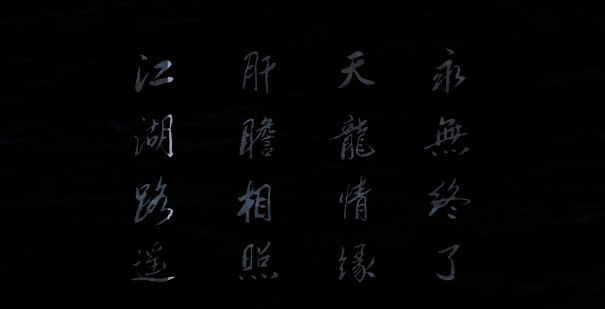 江湖路遥
肝膽相照
天龍情緣
永無終了